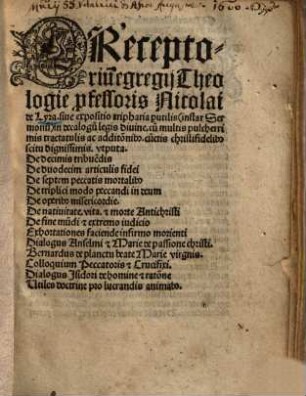 Precepto-
riũ egregij Theo
logie ꝓfessoris Nicolai
de Lyra siue expositio tripharia putilis (instar Ser
monũ) in decalogũ legis diuine. cũ multis pulcherri
mis tractatulis ac additõnibꝰ. cũctis christifidelibꝰ
scitu dignissimis. vtputa.
De decimis tribuẽdis
De duodecim articulis fidei
De septem peccatis mortalibꝰ
De triplici modo peccandi in eum
De operibꝰ misericordie.
De natiuitate. vita. & morte Antichristi
De fine mũdi & extremo iudicio
Exhortationes faciende infirmo morienti
Dialogus Anselmi & Marie de passione christi.
Bernardus de planctu beate Marie virginis.
Colloquium Peccatoris & Crucifixi.
Dialogus Isidori de homine & ratõne
Utiles doctrine pro lucrandis animabꝰ.